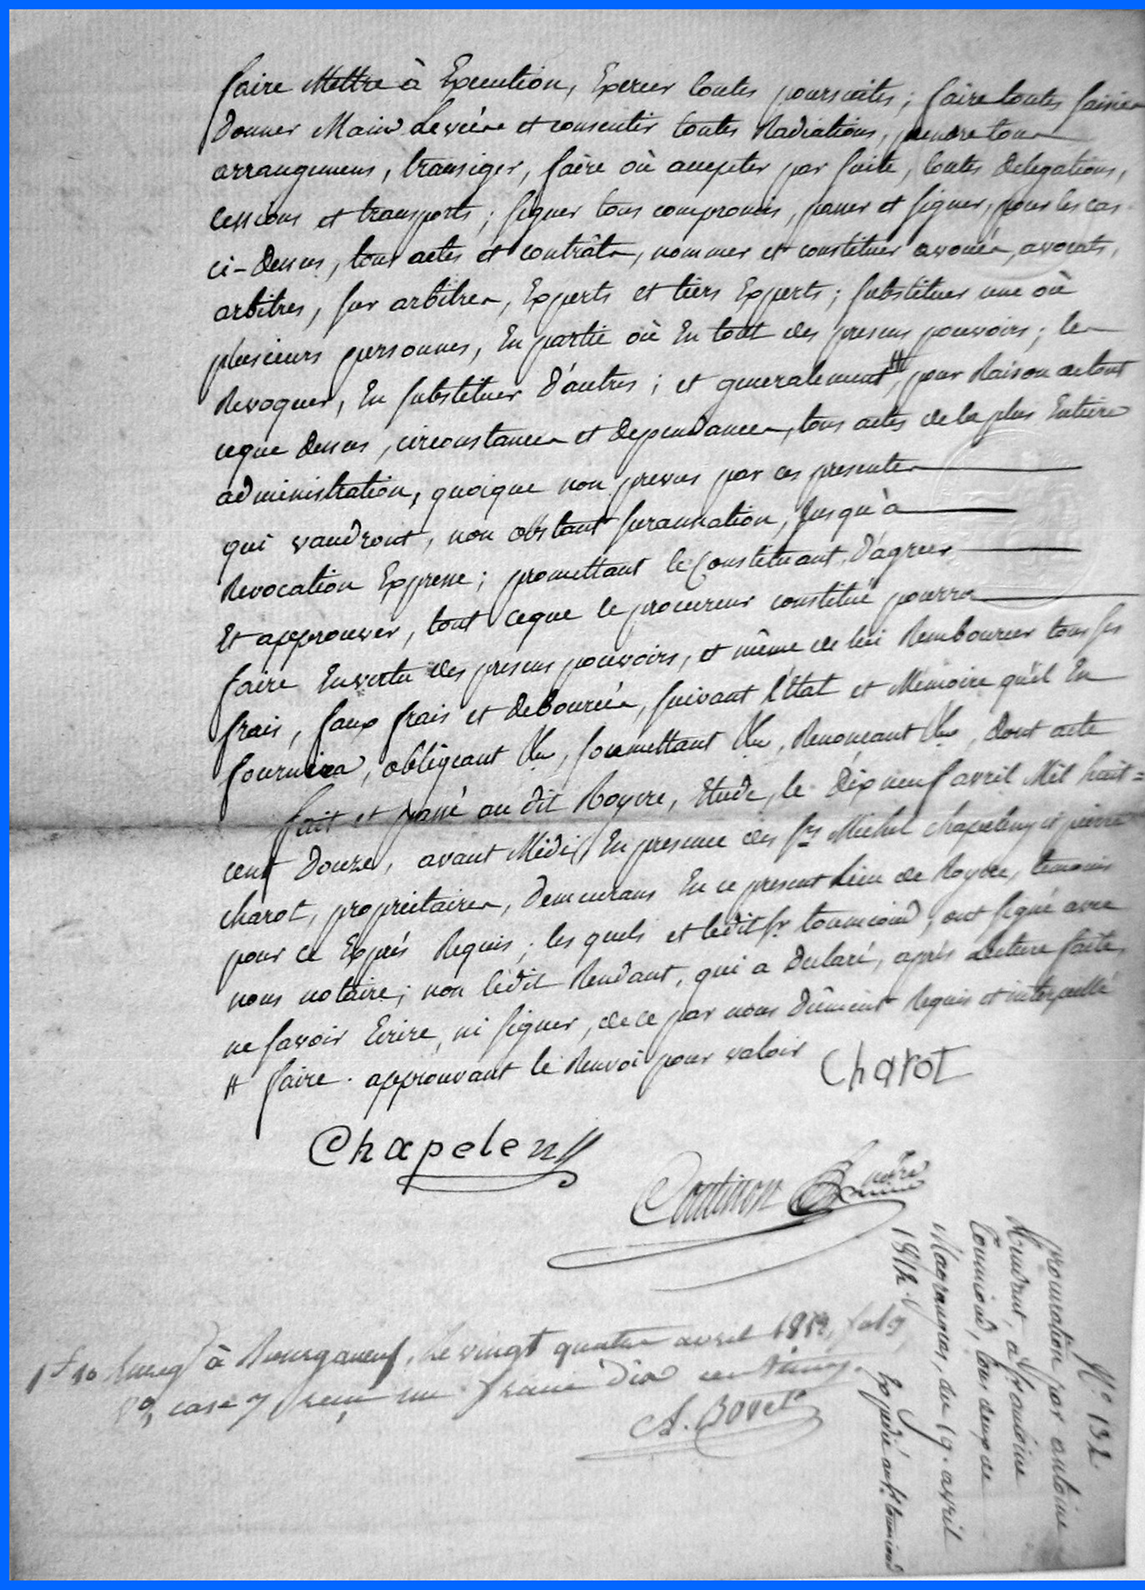 faire Mettre à Execution, Exercer toutes poursuites; faire toutes saisies
donner Main Levée et consentir toutes Radiations, prendre tous
arrangemens, transiger, faire où accepter par suite, toutes delegations,
cessions et transports; signer tous compromis, passer et signer, pour les cas
ci-dessus, tous actes et contrâts, nommer et constituer avoués, avocats,
arbitres, sur arbitres, Experts et tiers Experts; substituer une où
plusieurs personnes, En partie où En tout des presens pouvoirs; les
Revoquer, En substituer d'autres; et generalement # pour Raison de tout
ceque dessus, circonstances et dependances, tous actes de la plus Entiere
administration, quoique non prevus par ces presentes
qui vaudront, non obstant surannation, Jusqu'à
Revocation Expresse; promettant le Constituant, d'agréer
Et approuver, tout ceque le procureur constitué pourra
faire Envertu des presens pouvoirs, et même de lui Rembourser tous ses
frais, faux frais et debourcés, suivant l'état et Mémoire qu'il En
fournira, obligeant &a, soumettant &a, Renonceant &a, dont acte
fait et passé au dit Royere, Etude, le dix neuf avril Mil huit=
cent douze, avant Midi, En presence des srs Michel chapeleny et pierre
charot, proprietaires, demeurans En ce present Lieu de Royere, temoins
pour ce Exprés Requis; les quels et ledit sr toumieux, ont signé avec
nous notaire; non ledit Rendant, qui a declaré, aprés Lecture faite,
ne savoir Ecrire, ni signer, de ce par nous dûment Requis et interpellé
# faire. approuvant le Renvoi pour valoir
Charot
Chapeleny
Coutinon
notre
1f 10 Enregé à Bourganeuf, Le vingt quatre avril 1812, fol 9
Vo, case 7, reçu un franc dix centimes.
A. Bovet
No 132.
procuration par antoine
Rendant, à sr antoine
Toumieux, tous deux de
Magranges, du 19. avril
1812.
Expedié au sr toumieux